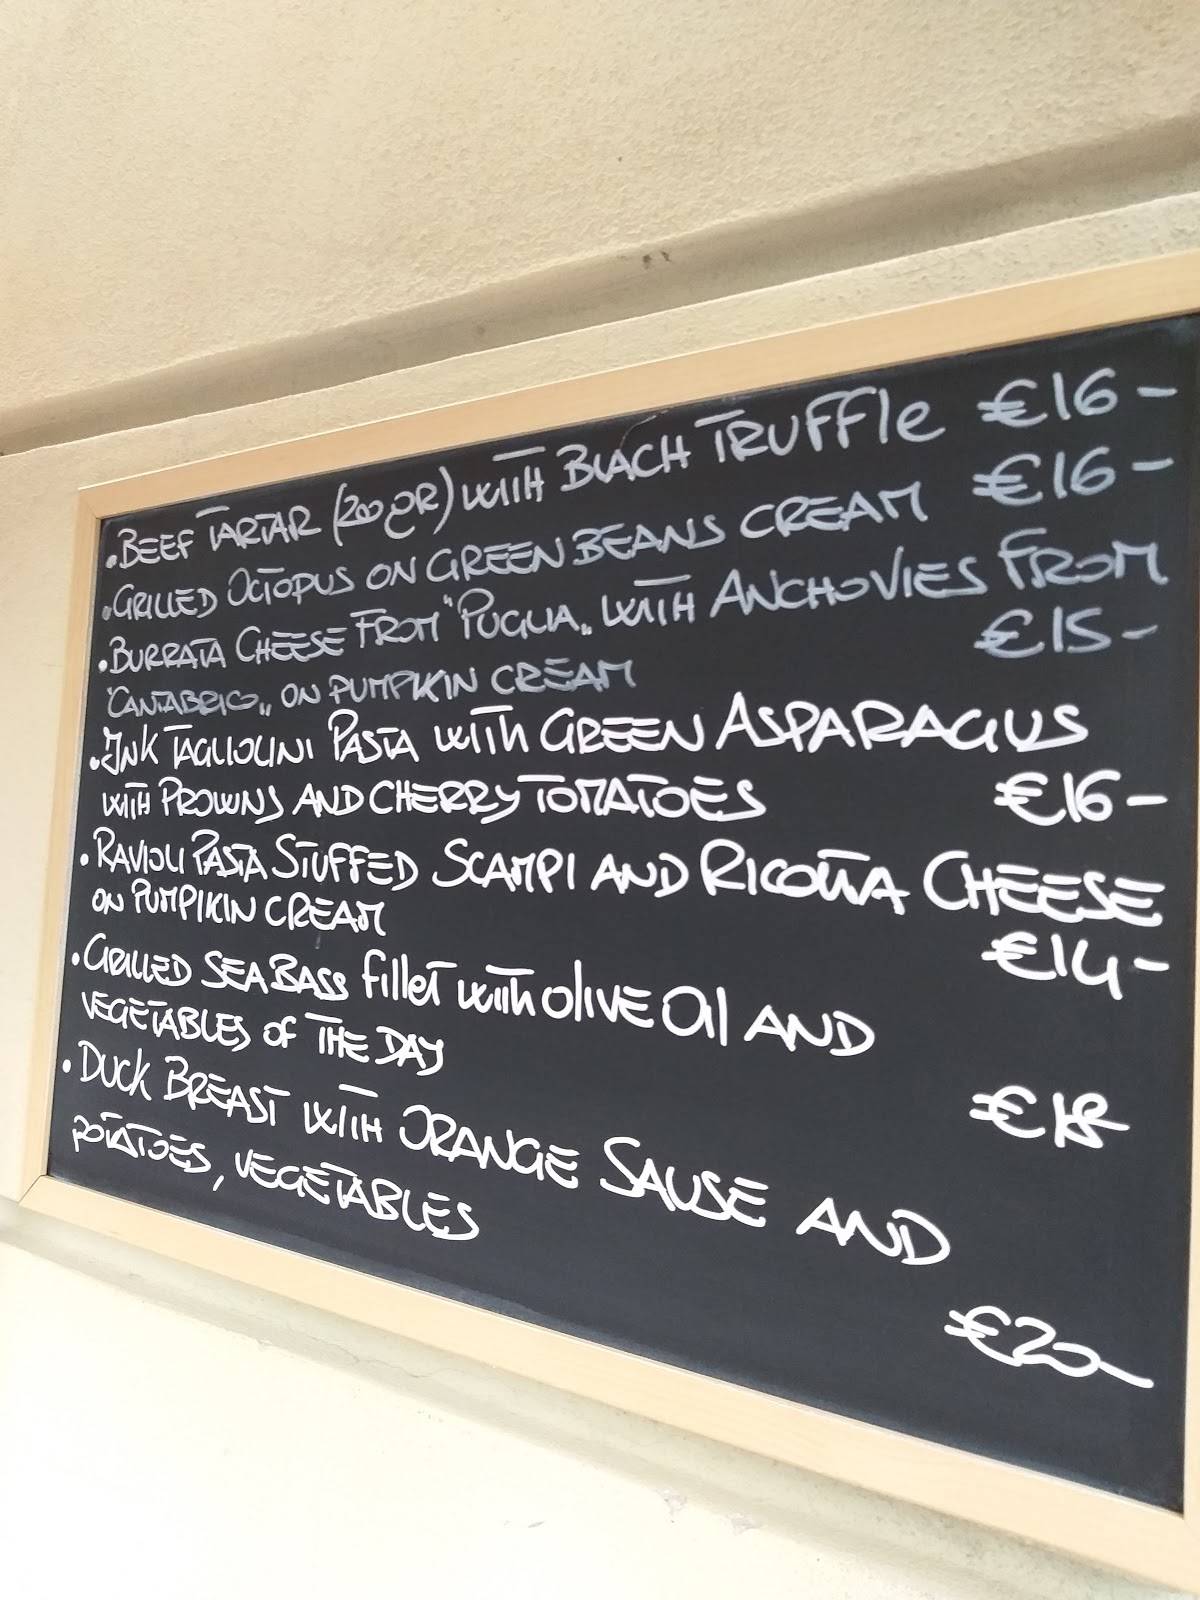 • BEEF TARTAR (200 gR) WITH BLACH TRUFFle €16-
• GRILLED OCTOPUS ON GREEN BEANS CREAM €16-
• BURRATA CHEESE FROM "PUGLIA„ WITH ANCHOVIES FROM
"CANTABRICO„ ON PUMPIKIN CREAM €15-
• INK TAGLIOLINI PASTA WITH GREEN ASPARAGUS
WITH PROWNS AND CHERRY TOMATOES €16-
• RAVIOLI PASTA STUFFED SCAMPI AND RICOTTA CHEESE
ON PUMPIKIN CREAM €14-
• GRILLED SEA BASS fillet WITH OLIVE OIL AND
VEGETABLES OF THE DAY €18-
• DUCK BREAST WITH ORANGE SAUSE AND
POTATOES, VEGETABLES €20-